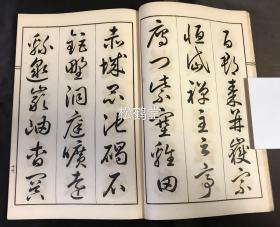 百郡秦并嶽宗
恒岱禪主云亭
雁門紫塞雞田
赤城昆池碣石
鉅野洞庭曠遠
綿邈巖岫杳冥
松鹤堂